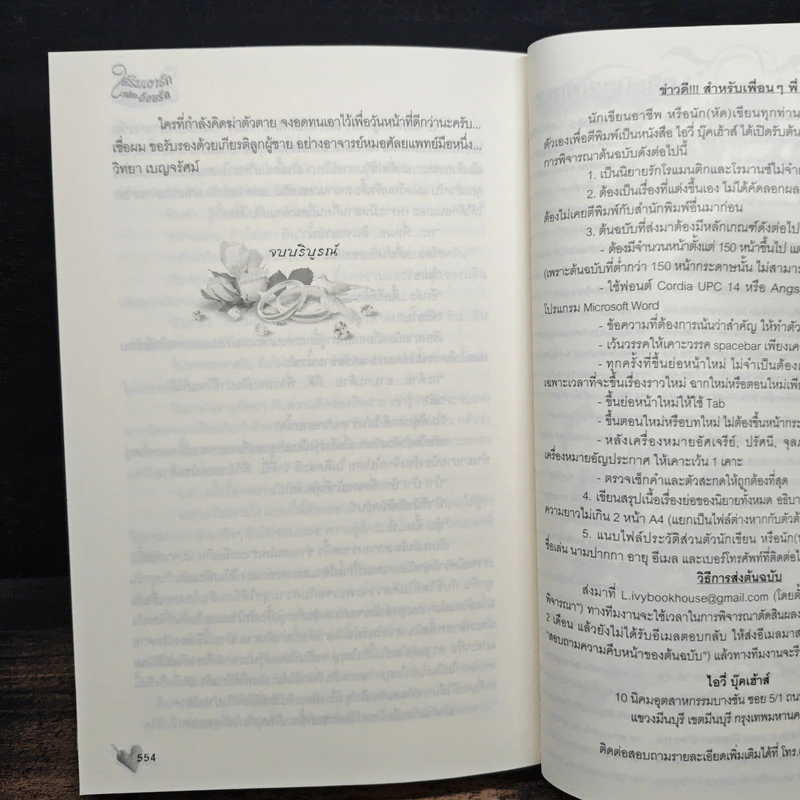 ใครที่กำลังคิดฆ่าตัวตาย จงอดทนเอาไว้เพื่อวันหน้าที่ดีกว่านะครับ...
เชื่อผม ขอรับรองด้วยเกียรติลูกผู้ชาย อย่างอาจารย์หมอศัลยแพทย์มือหนึ่ง...
วิทยา เบญจรัศม์
จบบริบูรณ์
554
ข่าวดี!!! สำหรับเพื่อนๆ พี่
นักเขียนอาชีพ หรือนัก(หัด)เขียนทุกท่าน
ตัวเองเพื่อตีพิมพ์เป็นหนังสือ ไอวี่ บุ๊คเฮ้าส์ ได้เปิดรับต้น
การพิจารณาต้นฉบับดังต่อไปนี้
1. เป็นนิยายรักโรแมนติกและโรมานซ์ไม่จำ
2. ต้องเป็นเรื่องที่แต่งขึ้นเอง ไม่ได้คัดลอกผล
ต้องไม่เคยตีพิมพ์กับสำนักพิมพ์อื่นมาก่อน
3. ต้นฉบับที่ส่งมาต้องมีหลักเกณฑ์ดังต่อไป
- ต้องมีจำนวนหน้าตั้งแต่ 150 หน้าขึ้นไป แต่
(เพราะต้นฉบับที่ต่ำกว่า 150 หน้ากระดาษนั้น ไม่สามาร
- ใช้ฟอนต์ Cordia UPC 14 หรือ Angs
โปรแกรม Microsoft Word
- ข้อความที่ต้องการเน้นว่าสำคัญ ให้ทำตัว
- เว้นวรรคให้เคาะวรรค spacebar เพียงเค
- ทุกครั้งที่ขึ้นย่อหน้าใหม่ ไม่จำเป็นต้อง
เฉพาะเวลาที่จะขึ้นเรื่องราวใหม่ ฉากใหม่หรือตอนใหม่เพีย
- ขึ้นย่อหน้าใหม่ให้ใช้ Tab
- ขึ้นตอนใหม่หรือบทใหม่ ไม่ต้องขึ้นหน้ากระ
- หลังเครื่องหมายอัศเจรีย์, ปรัศนี, จุลภ
เครื่องหมายอัญประกาศ ให้เคาะเว้น 1 เคาะ
- ตรวจเช็กคำและตัวสะกดให้ถูกต้องที่สุด
4. เขียนสรุปเนื้อเรื่องย่อของนิยายทั้งหมด อธิบา
ความยาวไม่เกิน 2 หน้า A4 (แยกเป็นไฟล์ต่างหากกับตัวต้
5. แนบไฟล์ประวัติส่วนตัวนักเขียน หรือนัก(
ชื่อเล่น นามปากกา อายุ อีเมล และเบอร์โทรศัพท์ที่ติดต่อไ
วิธีการส่งต้นฉบับ
ส่งมาที่ L.ivybookhouse@gmail.com (โดยตั้
พิจารณา") ทางทีมงานจะใช้เวลาในการพิจารณาตัดสินผลง
2 เดือน แล้วยังไม่ได้รับอีเมลตอบกลับ ให้ส่งอีเมลมาส
"สอบถามความคืบหน้าของต้นฉบับ") แล้วทางทีมงานจะรี
ไอวี่ บุ๊คเฮ้าส์
10 นิคมอุตสาหกรรมบางชัน ซอย 5/1 ถน
แขวงมีนบุรี เขตมีนบุรี กรุงเทพมหานค
ติดต่อสอบถามรายละเอียดเพิ่มเติมได้ที่ โทร.